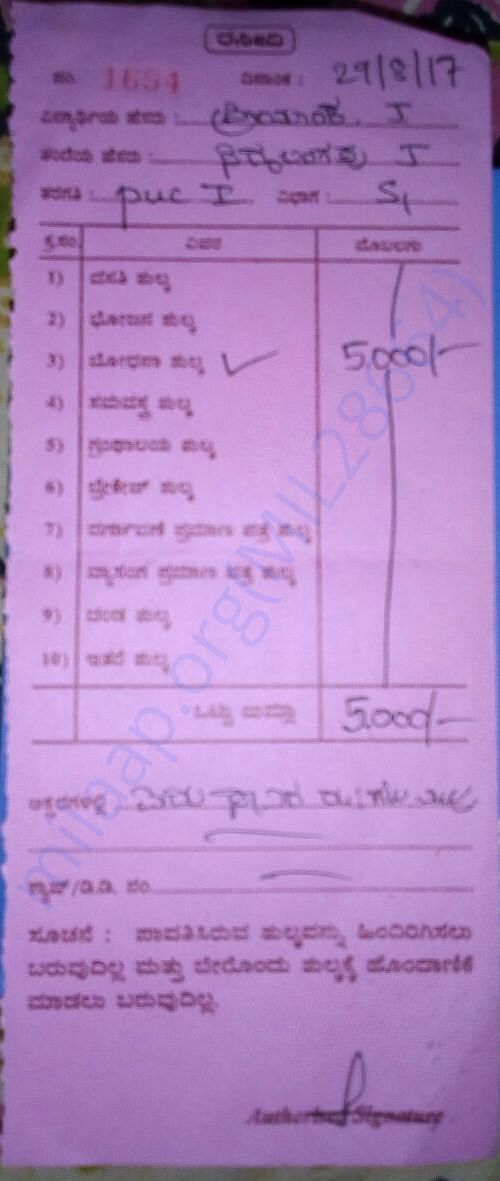 ರಸೀದಿ
ನಂ. 1694 ದಿನಾಂಕ : 29/8/17
ವಿದ್ಯಾರ್ಥಿಯ ಹೆಸರು : ಪ್ರಿಯಾಂಕ. J
ತಂದೆಯ ಹೆಸರು : J
ತರಗತಿ : PUC I ವಿಭಾಗ : S1
ಕ್ರ.ಸಂ. ವಿವರ ಮೊಬಲಗು
1) ವಸತಿ ಶುಲ್ಕ
2) ಭೋಜನ ಶುಲ್ಕ
3) ಬೋಧನಾ ಶುಲ್ಕ ✓ 5,000/-
4) ಸಮವಸ್ತ್ರ ಶುಲ್ಕ
5) ಗ್ರಂಥಾಲಯ ಶುಲ್ಕ
6) ಬ್ರೇಕೇಜ್ ಶುಲ್ಕ
7) ವರ್ಗಾವಣೆ ಪ್ರಮಾಣ ಪತ್ರ ಶುಲ್ಕ
8) ವ್ಯಾಸಂಗ ಪ್ರಮಾಣ ಪತ್ರ ಶುಲ್ಕ
9) ದಂಡ ಶುಲ್ಕ
10) ಇತರೆ ಶುಲ್ಕ
ಒಟ್ಟು ಜಮಾ 5,000/-
ಅಕ್ಷರಗಳಲ್ಲಿ ಐದು ಸಾವಿರ ರೂ.ಗಳು ಮಾತ್ರ
ಸ್ಕ್ಯಾನ್/ಡಿ.ಡಿ. ನಂ.
ಸೂಚನೆ : ಪಾವತಿಸಿರುವ ಶುಲ್ಕವನ್ನು ಹಿಂದಿರುಗಿಸಲು
ಬರುವುದಿಲ್ಲ ಮತ್ತು ಬೇರೊಂದು ಶುಲ್ಕಕ್ಕೆ ಹೊಂದಾಣಿಕೆ
ಮಾಡಲು ಬರುವುದಿಲ್ಲ.
Authorised Signature
milaap.org(MIL28664)